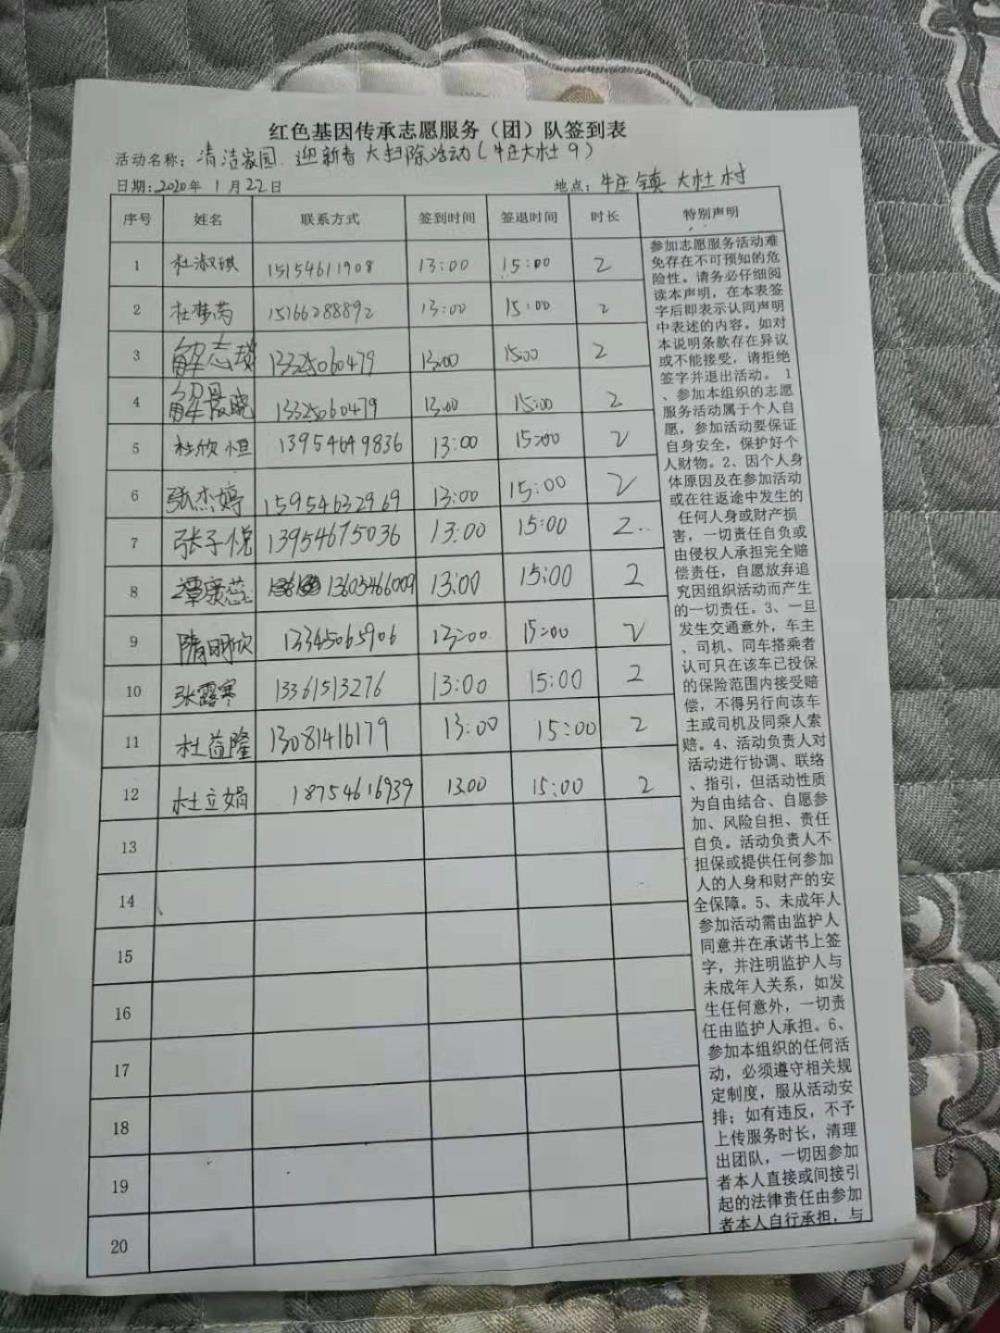 红色基因传承志愿服务（团）队签到表
活动名称：清洁家园 迎新春 大扫除活动（牛庄大杜9）
日期：2020年 1月22日 地点：牛庄镇 大杜村
序号 姓名 联系方式 签到时间 签退时间 时长 特别声明
1 杜淑琪 15154611908 13:00 15:00 2
2 杜梦芮 15166288892 13:00 15:00 2
3 解志 13325060479 13:00 15:00 2
4 解晨晓 13325060479 13:00 15:00 2
5 杜欣恒 13954649836 13:00 15:00 2
6 张杰婷 15954632969 13:00 15:00 2
7 张子悦 13954675036 13:00 15:00 2
8 13605466009 13:00 15:00 2
9 隋明欣 13345065906 13:00 15:00 2
10 张露寒 13361513276 13:00 15:00 2
11 杜益隆 13081416179 13:00 15:00 2
12 杜立娟 18754616939 13:00 15:00 2
13
14
15
16
17
18
19
20
参加志愿服务活动难
免存在不可预知的危
险性。请务必仔细阅
读本声明，在本表签
字后即表示认同声明
中表述的内容。如对
本说明条款存在异议
或不能接受，请拒绝
签字并退出活动。 1
、参加本组织的志愿
服务活动属于个人自
愿，参加活动要保证
自身安全，保护好个
人财物。2、因个人身
体原因及在参加活动
或在往返途中发生的
任何人身或财产损
害，一切责任自负或
由侵权人承担完全赔
偿责任，自愿放弃追
究因组织活动而产生
的一切责任。3、一旦
发生交通意外，车主
、司机、同车搭乘者
认可只在该车已投保
的保险范围内接受赔
偿，不得另行向该车
主或司机及同乘人索
赔。4、活动负责人对
活动进行协调、联络
、指引，但活动性质
为自由结合、自愿参
加、风险自担、责任
自负。活动负责人不
担保或提供任何参加
人的人身和财产的安
全保障。5、未成年人
参加活动需由监护人
同意并在承诺书上签
字，并注明监护人与
未成年人关系，如发
生任何意外，一切责
任由监护人承担。6、
参加本组织的任何活
动，必须遵守相关规
定制度，服从活动安
排；如有违反，不予
上传服务时长，清理
出团队，一切因参加
者本人直接或间接引
起的法律责任由参加
者本人自行承担，与